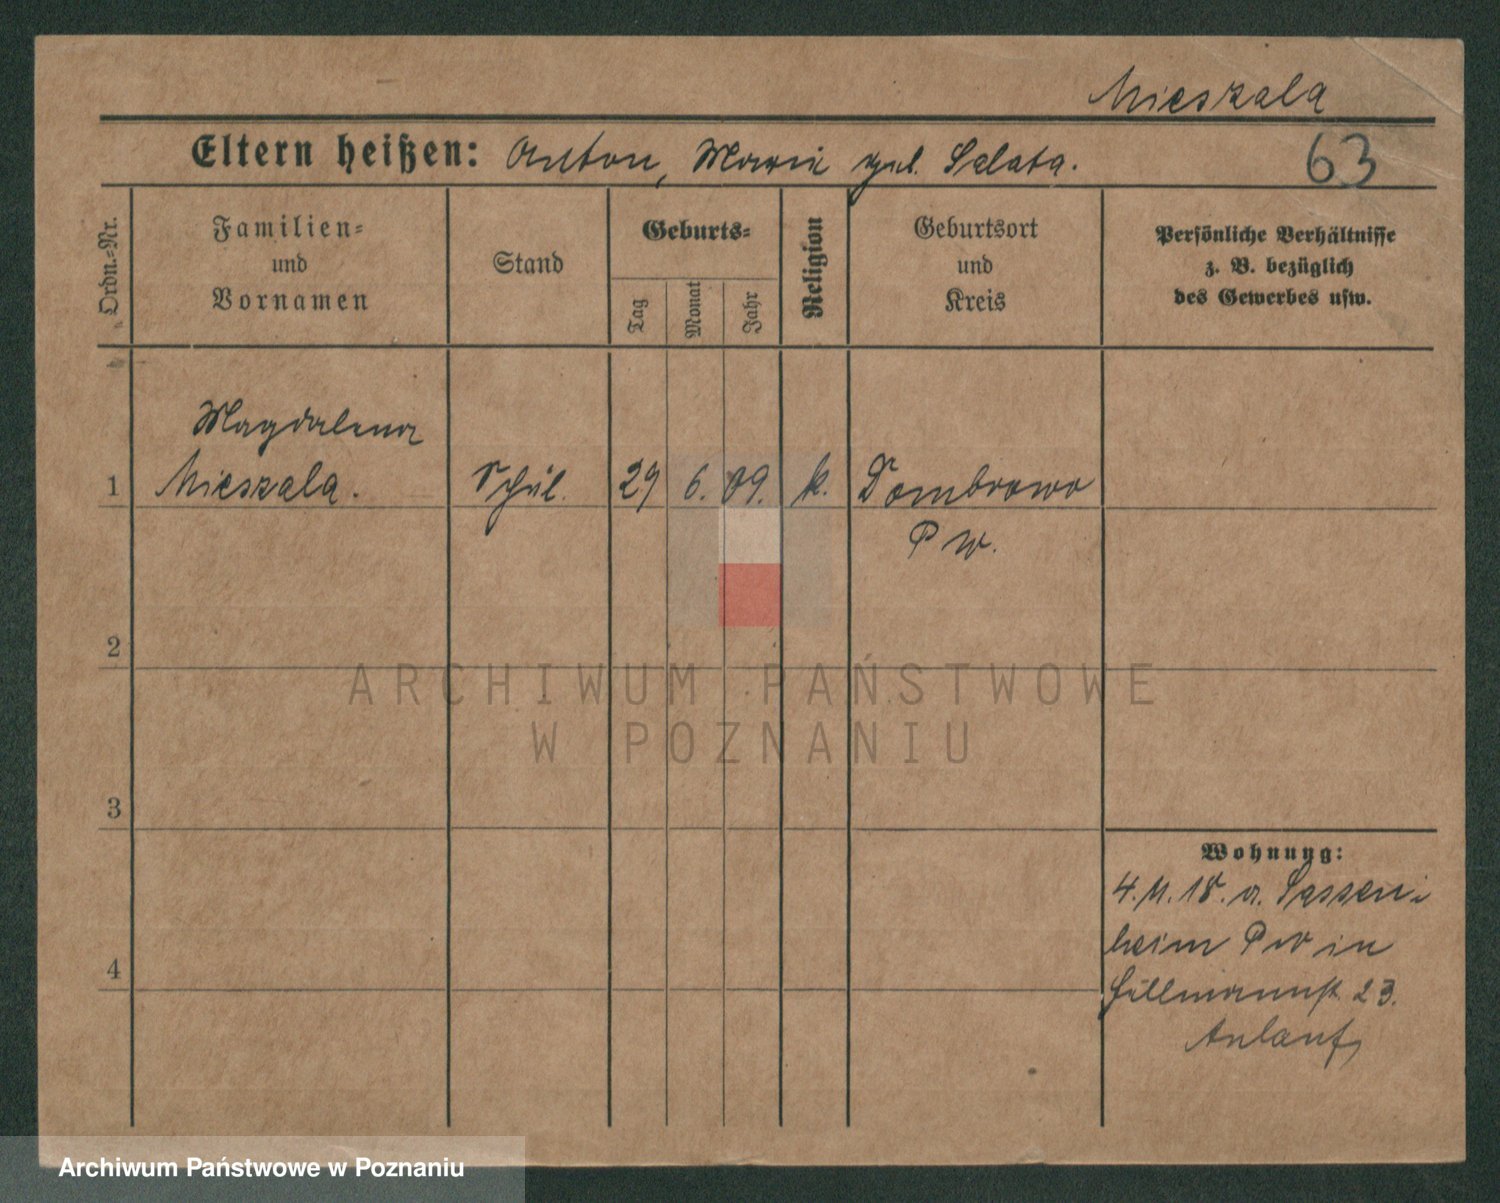 Mieszala
Eltern heißen: Anton, Maria geb. Salata.
63
Ordn.-Nr.
Familien-
und
Vornamen
Stand
Geburts-
Tag
Monat
Jahr
Religion
Geburtsort
und
Kreis
Persönliche Verhältnisse
z. B. bezüglich
des Gewerbes usw.
Magdalena
1 Mieszala. Schül. 29 6. 09. k. Dombrowo
P W.
2
3
4
Wohnung:
4.11.18. a. Sassen-
heim PW in
23.
Anlauf
ARCHIWUM PAŃSTWOWE
W POZNANIU
Archiwum Państwowe w Poznaniu